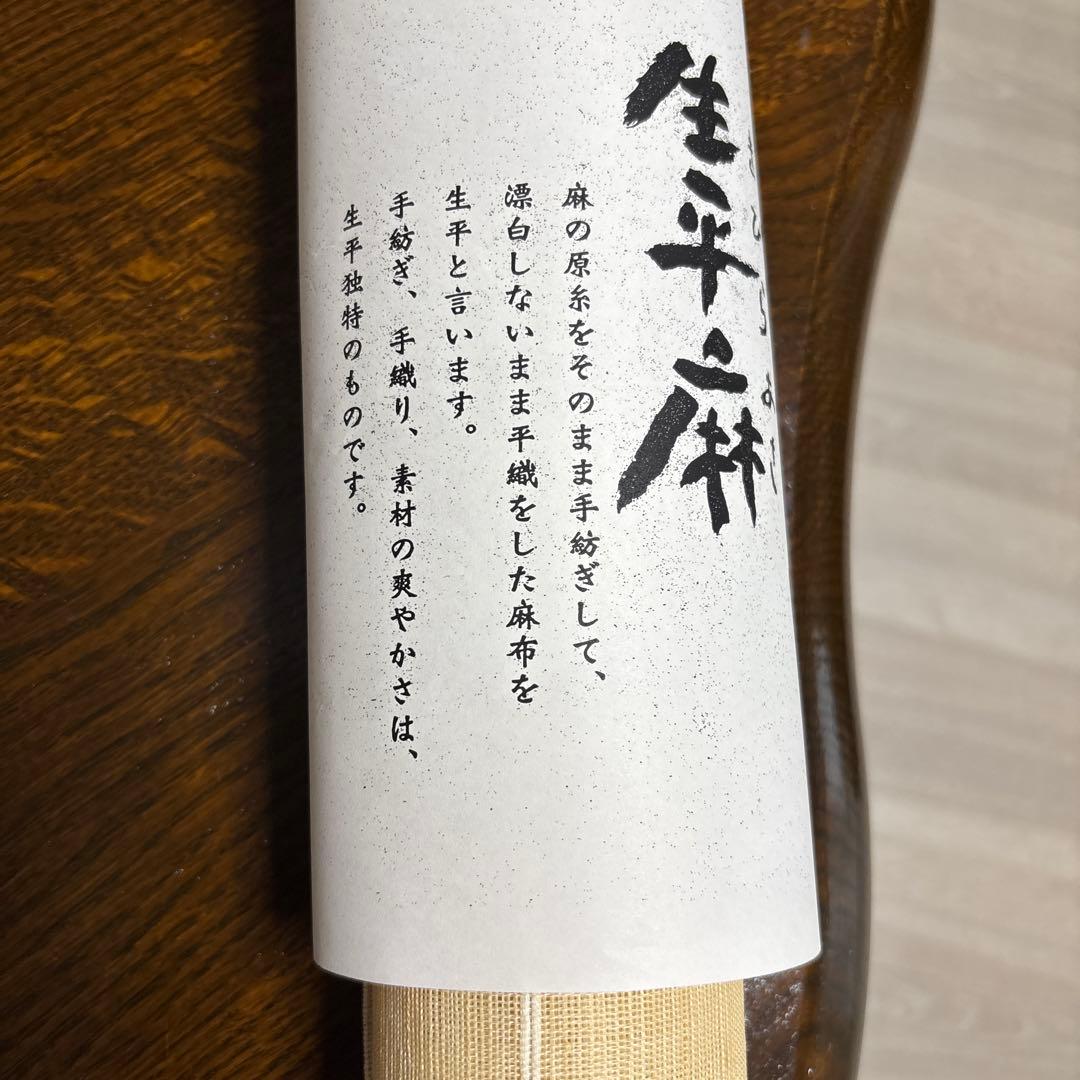 生平麻
麻の原糸をそのまま手紡ぎして、
漂白しないまま平織をした麻布を
生平と言います。
手紡ぎ、手織り、素材の爽やかさは、
生平独特のものです。